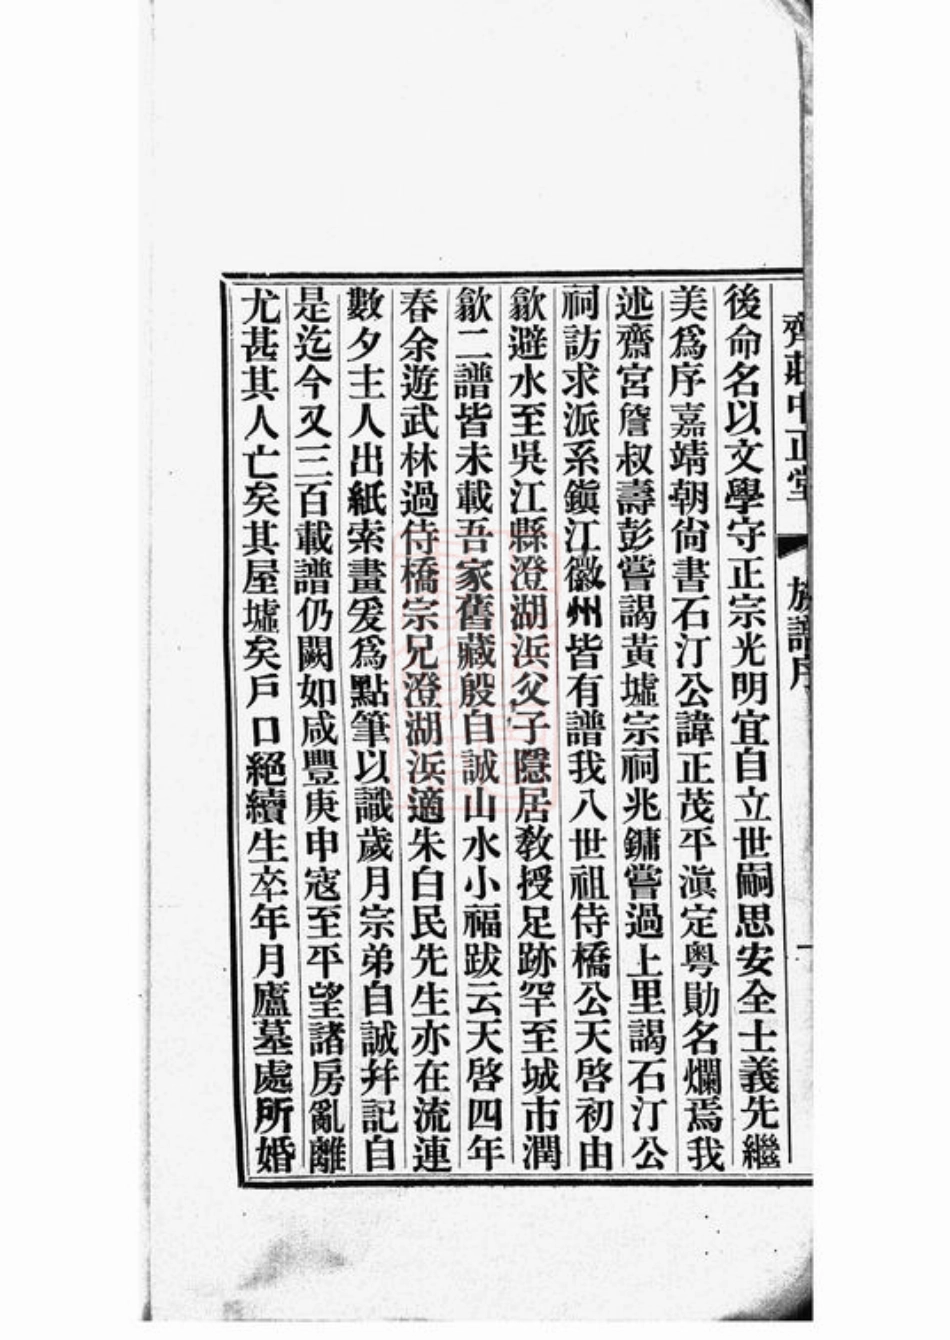 齊莊中正堂 族譜序 一
後命名以文學守正宗光明宜自立世嗣思安全士義先繼
美爲序嘉靖朝尙書石汀公諱正茂平滇定粵勛名爛焉我
述齋宮詹叔壽彭嘗謁黃墟宗祠兆鏞嘗過上里謁石汀公
祠訪求派系鎭江徽州皆有譜我八世祖侍橋公天啓初由
歙避水至吳江縣澄湖浜父子隱居敎授足跡罕至城市潤
歙二譜皆未載吾家舊藏殷自誠山水小福跋云天啓四年
春余遊武林過侍橋宗兄澄湖浜適朱白民先生亦在流連
數夕主人出紙索畫爰爲點筆以識歲月宗弟自誠幷記自
是迄今又三百載譜仍闕如咸豐庚申寇至平望諸房亂離
尤甚其人亡矣其屋墟矣戶口絕續生卒年月廬墓處所婚